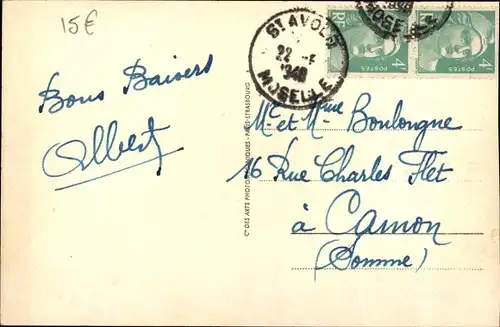 15€
Bons Baisers
Albert
St AVOLD
22
MOSELLE
4F
POSTES
4F
POSTES
Cie DES ARTS PHOTOMÉCANIQUES - PARIS-STRASBOURG
Mr et Mme Boulongne
16 Rue Charles Flet
à Camon
(Somme)